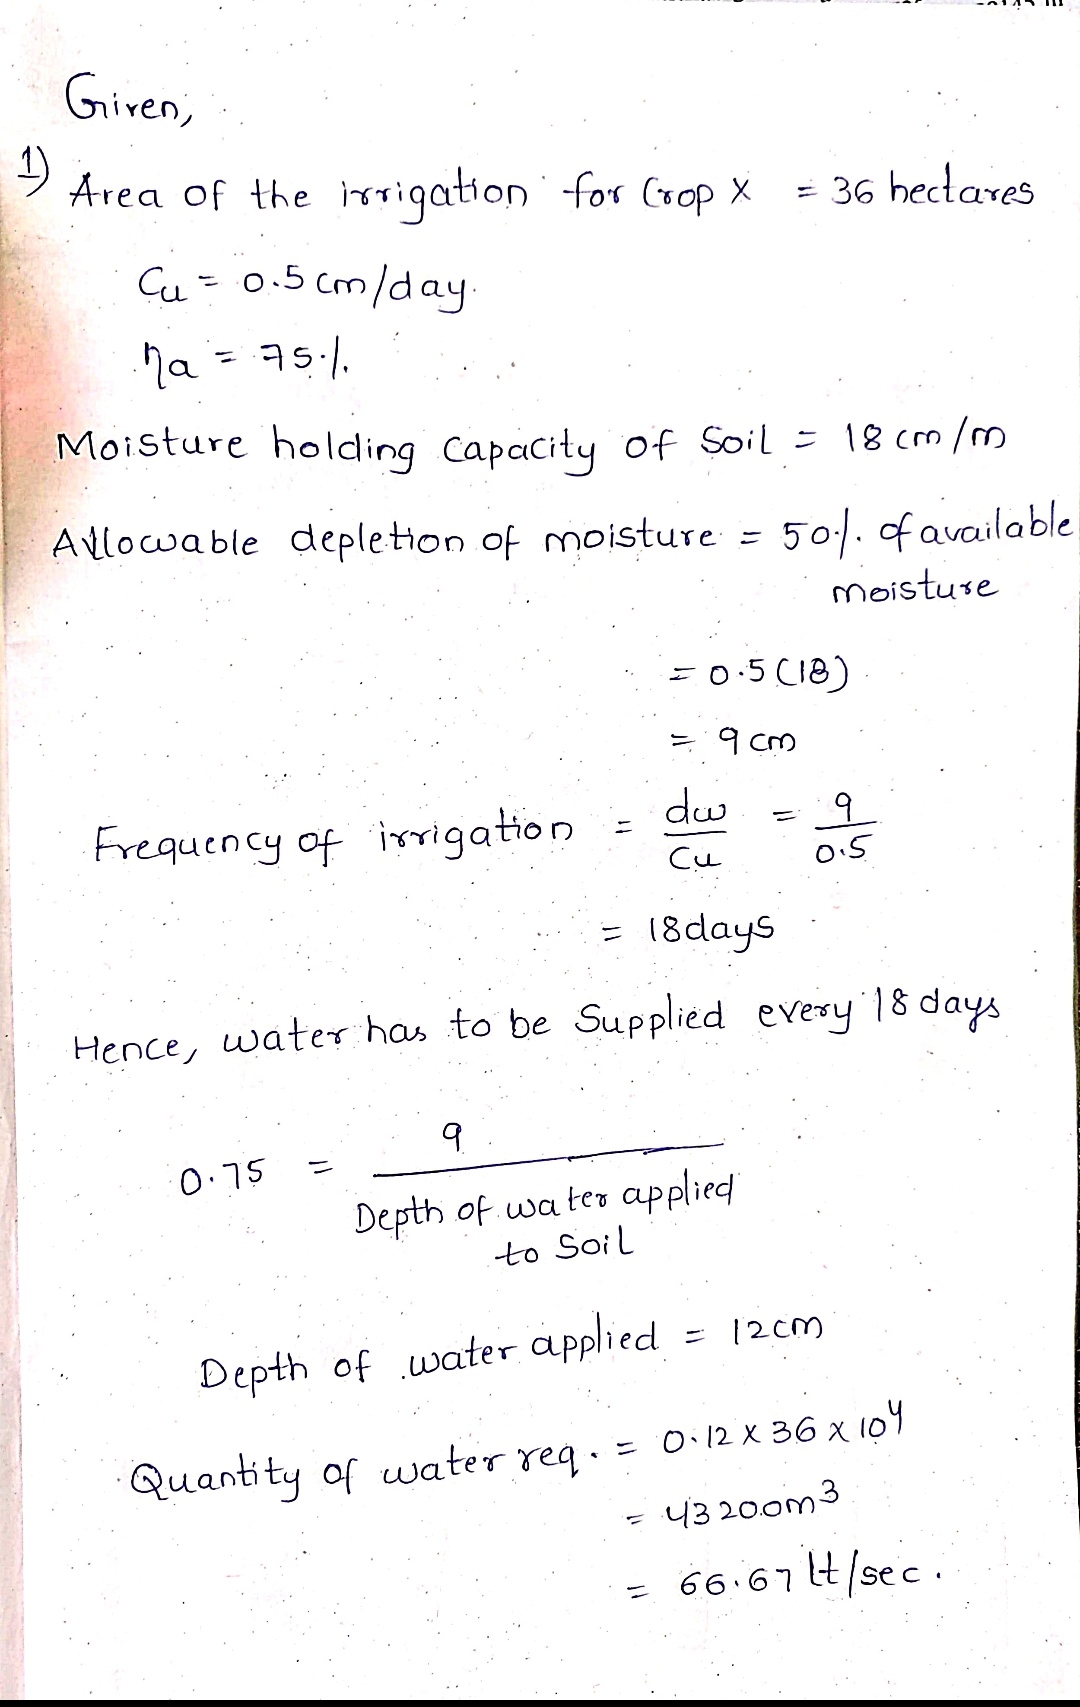 Given,
1) Area of the irrigation for Crop X = 36 hectares
Cu = 0.5 cm/day.
ηa = 75%.
Moisture holding capacity of Soil = 18 cm/m
Allowable depletion of moisture = 50%. of available
moisture
= 0.5 (18)
= 9 cm
Frequency of irrigation = dw/Cu = 9/0.5
= 18 days
Hence, water has to be Supplied every 18 days
0.75 = 9 / Depth of water applied
to Soil
Depth of water applied = 12cm
Quantity of water req. = 0.12 x 36 x 10⁴
= 43200m³
= 66.67 lt/sec.